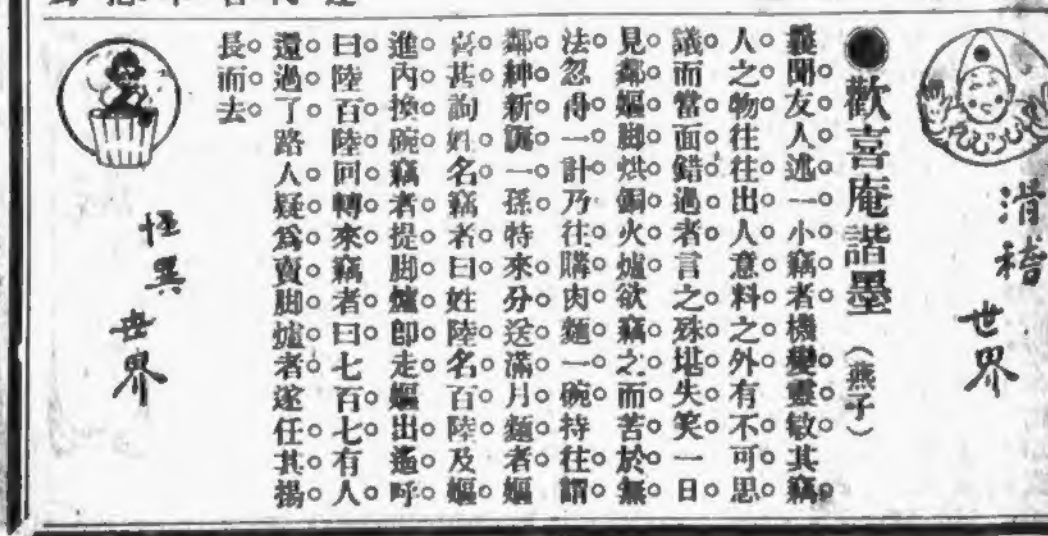 滑稽世界
●歡喜庵諧墨 (燕子)
曩聞。友人。述一。小竊者。機變靈敏。其竊。
人之物。往往出人意料之外。有不可思
議。而當面錯過者。言之殊堪失笑。一日
見鄰嫗脚烘銅火爐。欲竊之。而苦於無
法。忽得一計。乃往購肉麵一碗。持往謂
鄰紳新誕一孫。特來分送滿月麵者。嫗
喜甚。詢姓名。竊者曰。姓陸名百陸。及嫗
進內換碗。竊者提脚爐即走。嫗出遙呼
曰。陸百陸回轉來。竊者曰。七百七有人
還過了。路人疑爲賣脚爐者。遂任其揚
長而去。
怪異世界